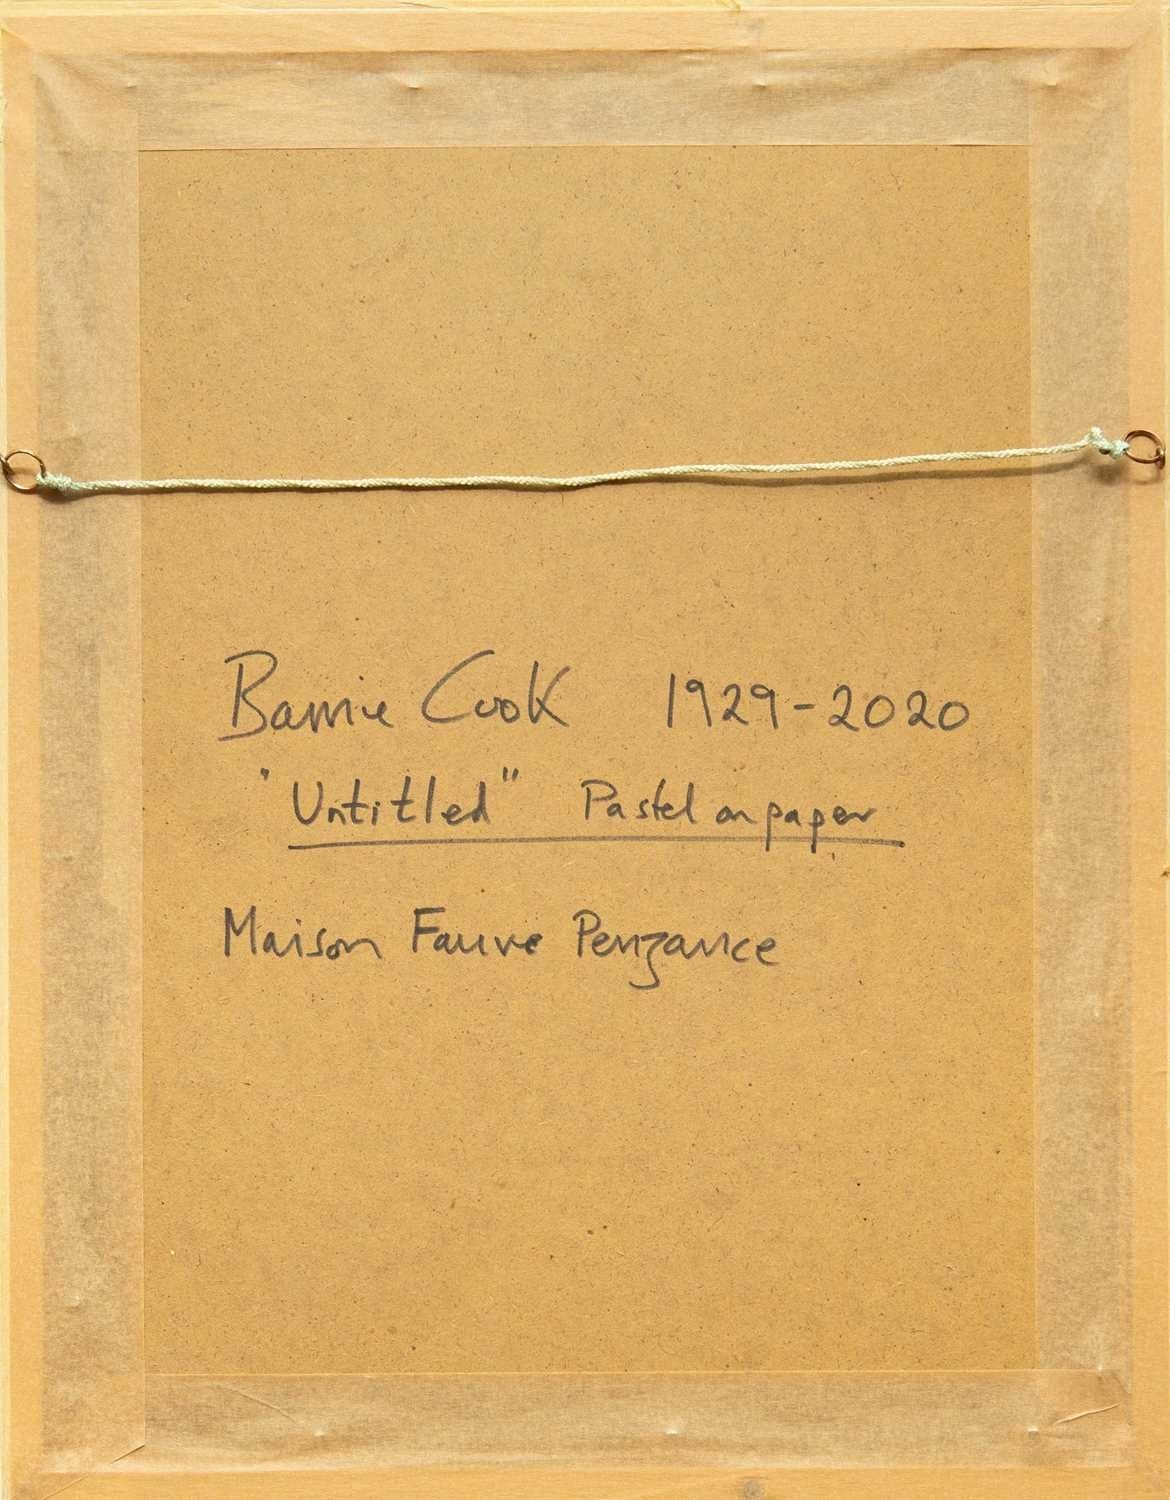 Barrie Cook 1929-2020
"Untitled" Pastel on paper
Maison Fauve Penzance